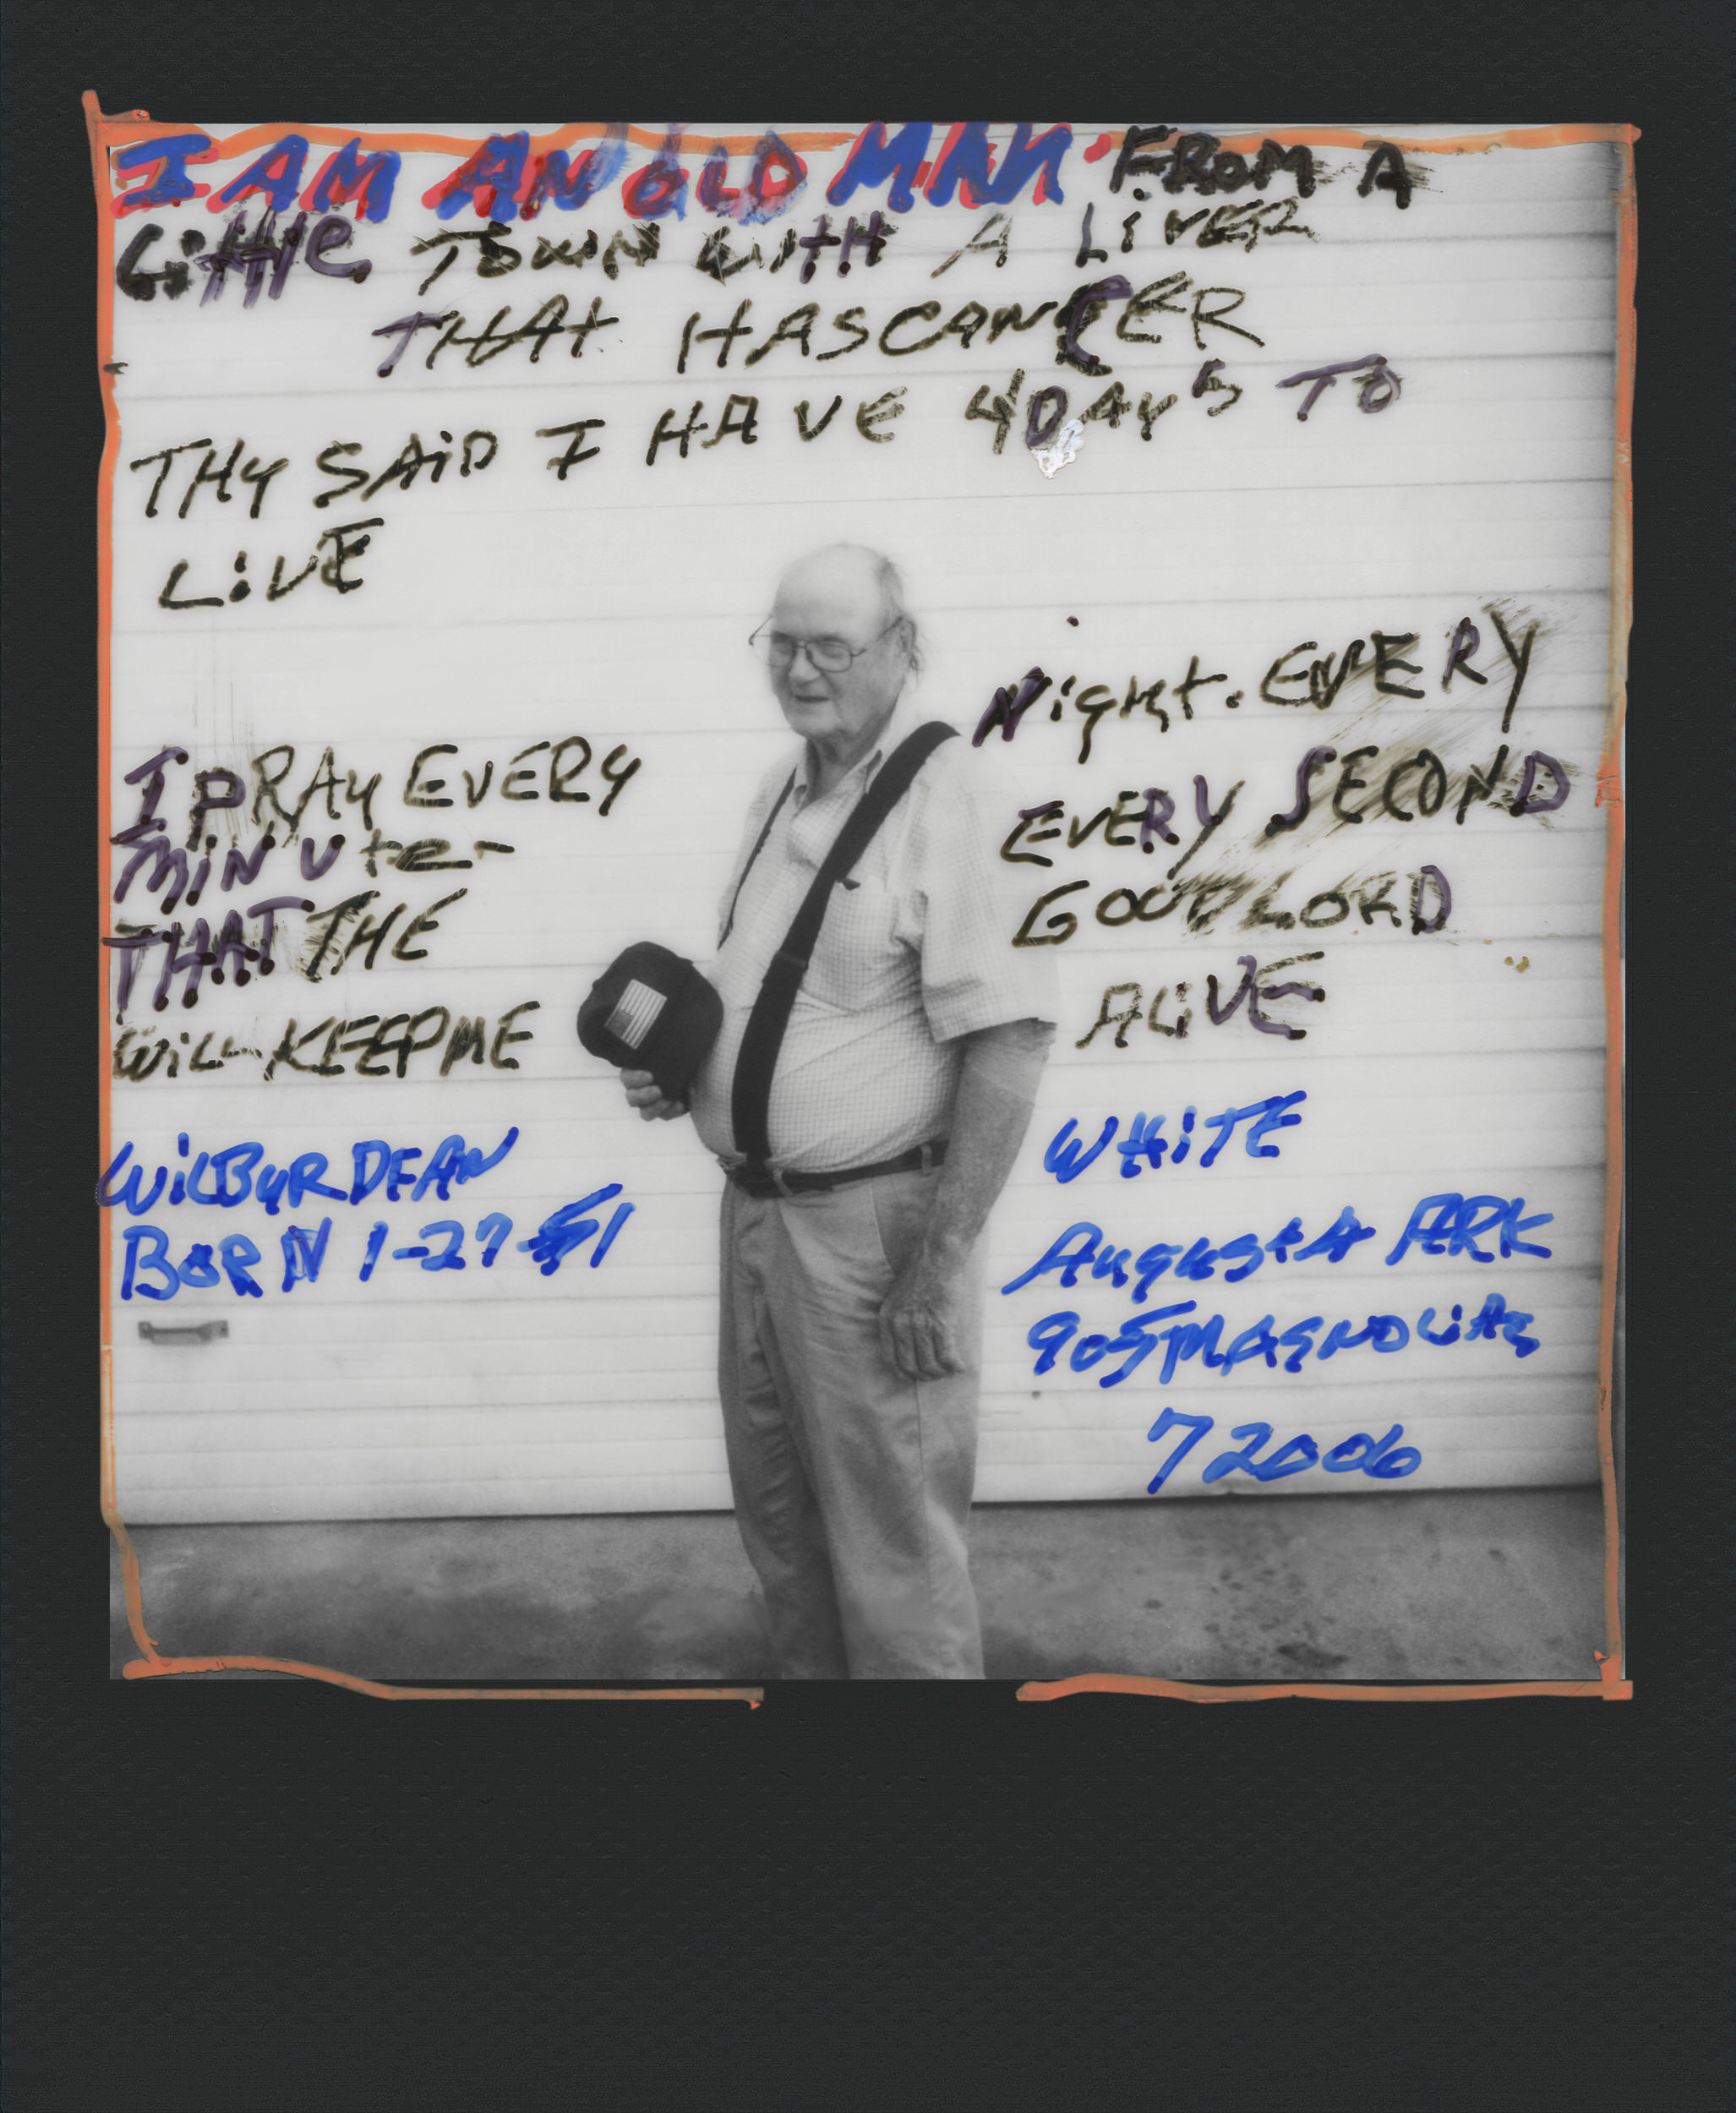 I AM AN OLD MAN. FROM A
LittlE TOWN WITH A LiVER
THAt HAS CANCER
THY SAiD I HAVE 4 DAYS TO
LiVE
I PRAY EVERY Night. EVERY
MiNUte- EVERY SECOND
THAT THE GOOD LORD
WiLL KEEP ME ALiVE
WiLBUR DEAN WHiTE
BORN 1-27-51 AugustA ARK
905 MAGNOLiA
72006